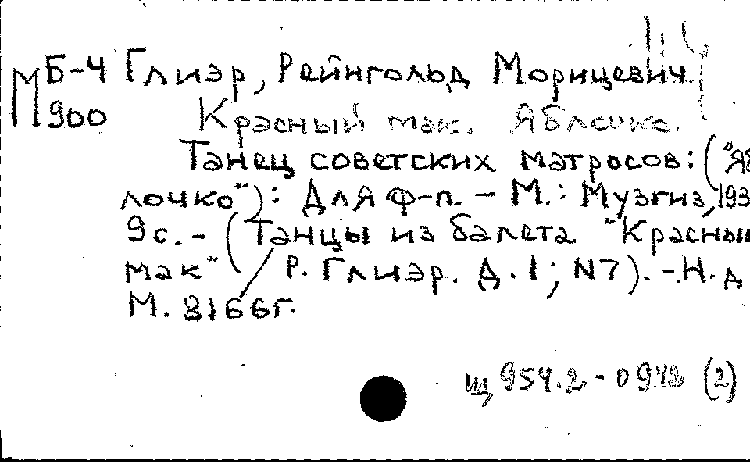 Б-4 Глиэр, Рейнгольд Морицевич.
М 900 Красный мак. Яблочко.
Танец советских матросов: ("Яб
лочко"): Для ф-п. - М.: Музгиз, 193
9с. - (Танцы из балета "Красны
мак" / Р. Глиэр. Д. 1; N7). - Н. д
М. 8166г.
Щ 954.2-0942 (2)